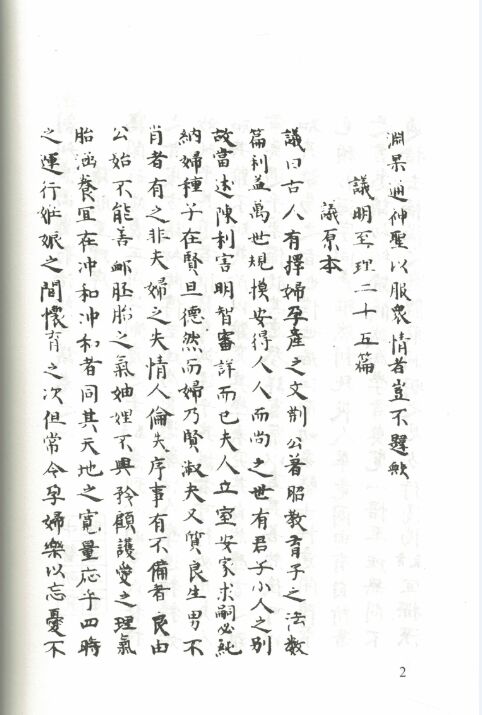 淵杲通神聖以服衆情者豈不韙歟
議明至理二十五篇
議原本
議曰古人有擇婦孕產之文荊公著昭教育子之法数
篇利益萬世規摸安得人人而尚之世有君子小人之別
故當述陳利害明智審詳而已夫人立室安家求嗣必純
納婦種子在賢旦德然而婦乃賢淑夫又質良生男不
肖者有之非夫婦之失情人倫失序事有不備者良由
公姑不能善卹胚胎之氣妯娌不興矜顧護愛之理氣
胎涵養宜在冲和冲和者同其天地之寬量応乎四時
之運行妊娠之間懷育之次但常令孕婦樂以忘憂不
2